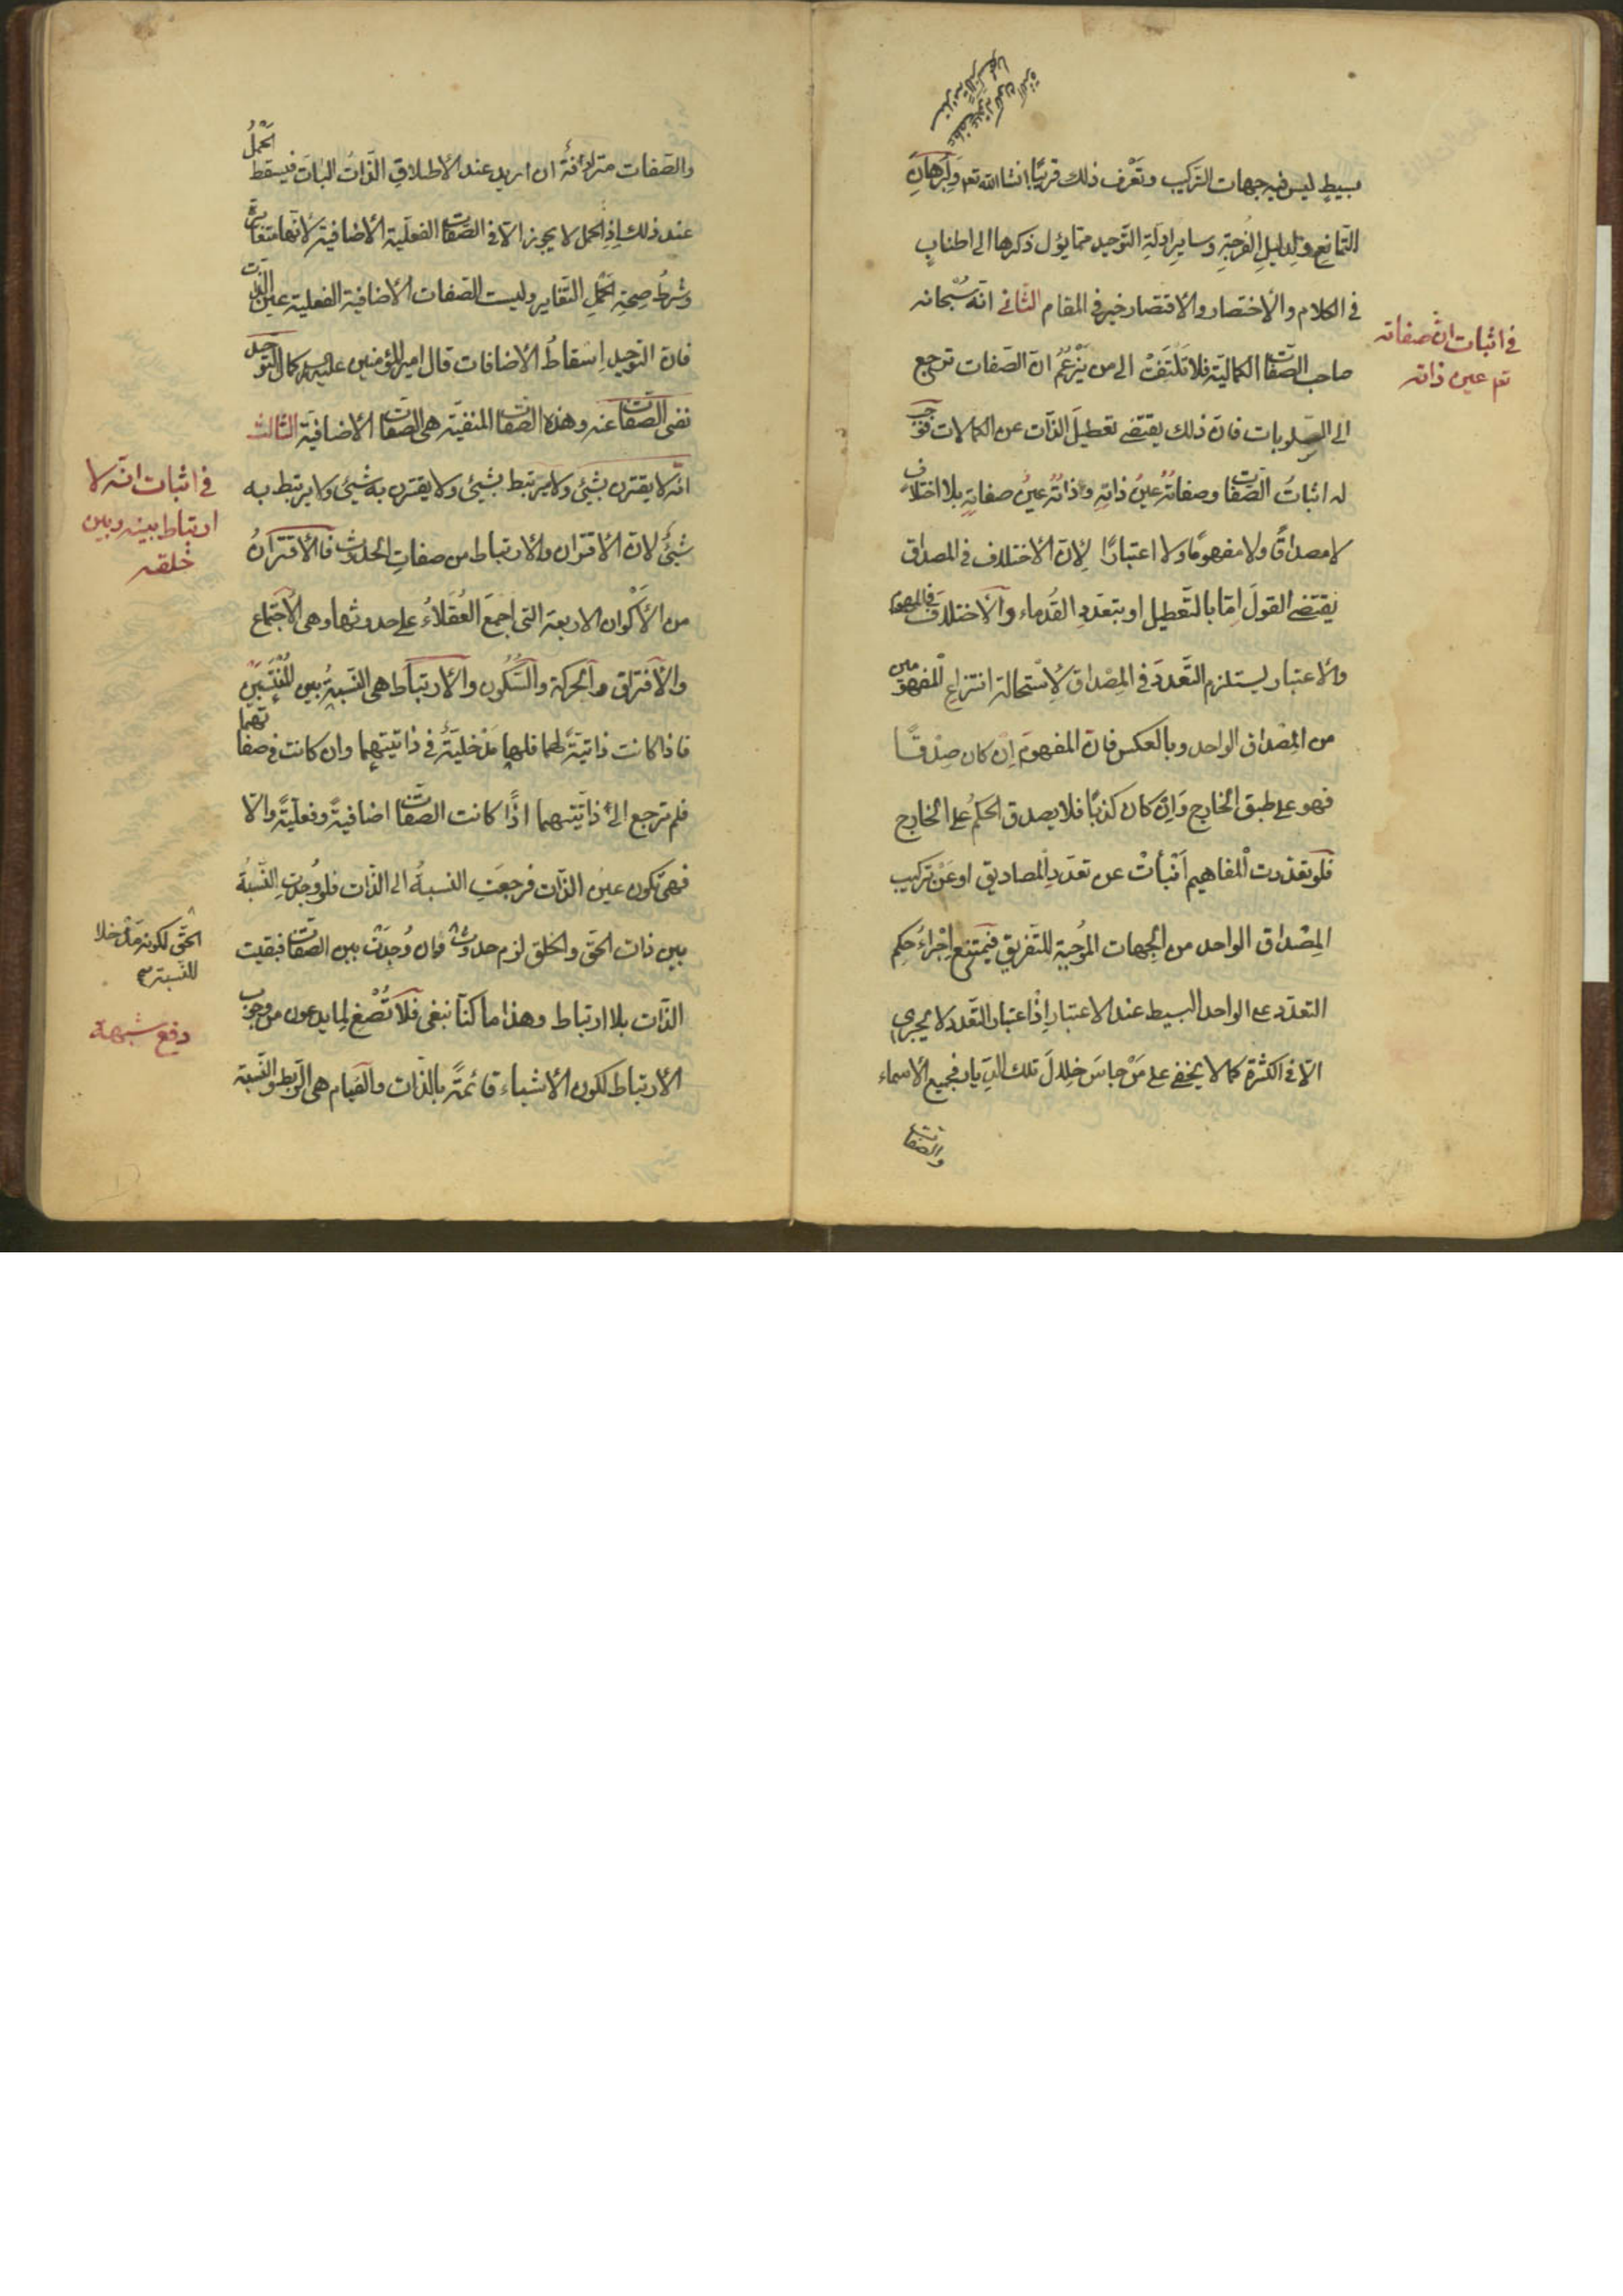 بسيطٍ ليس فيه جهات التركيب وتعرف ذلك قريبًا انشاالله تعم ولبرهانِ
التمانع ولدليلِ الفُرجةِ وسايرِ ادلّةِ التوحيد ممّا يؤل ذكرها الى اطنابٍ
في الكلام والاختصار والاقتصار خير في المقام الثاني انّه سبحانه
صاحب الصّفات الكماليّة فلا تَلتَفتْ الى من يَزْعُمُ انّ الصّفات ترجع
الى السلوبات فانّ ذلك يقتضى تعطيلَ الذّات عن الكمالات فوجب
له اثباتُ الصّفات وصفاتُهُ عينُ ذاتِهِ وذاتُهُ عينُ صفاتِهِ بلا اختلافٍ
لا مصداقًا ولا مفهومًا ولا اعتبارًا لِانّ الاختلاف في المصداق
يقتضى القولَ اِمّا بالتّعطيل او بتعدّدِ القُدماء والاختلاف في المفهوم
والاعتبار يستلزم التّعدّدَ في المِصْداق لاِسْتحالة انتزاعِ المفهومين
من المِصْداق الواحد وبالعكس فانّ المفهومَ اِنْ كان صِدْقًا
فهو على طبق الخارج وَاِنْ كان كذبًا فلا يصدق الحكمُ على الخارج
فلو تعدّدت المفاهيم اَنْبأتْ عن تعدّدِ المصاديق او عَنْ تركيب
المِصْداق الواحد من الجِهات الموُجبة للتّفريق فيمتنع اِجْراءُ حكم
التعدّد على الواحد البسيط عند الاعتبار اِذْ اعتبار التّعدّد لا يجرى
الّا في الكثرة كما لا يخفى على مَنْ جاسَ خِلالَ تلك الدّيار فجميع الاسماء
والصّفات
في اثبات انّ صفاته
تعم عين ذاته
والصّفات مترادفةٌ ان اريد عند الاطلاقِ الذّاتُ الباتّ فيسقط الحَمْلُ
عند ذلك اِذِ الحمل لا يجوز الّا في الصّفات الفعليّة الاضافية لانّها متغايرة
وشرطُ صِحّةِ الحَمْلِ التّغاير وليست الصّفات الاضافية الفعلية عين الذّات
فانّ التوحيد اِسْقاطُ الاضافات قال امير المؤمنين عليه السلام كمال التّوحيد
نفى الصّفات عنه وهذه الصّفات المنفيّة هى الصّفات الاضافيّة الثالث
انّه لا يقترن بشيئ ولا يرتبط بشيئ ولا يقترن به شيئ ولا يرتبط به
شيئ لانّ الاقتران والارتباط من صفاتِ الحدوث فالاقترانُ
من الأكْوان الاربعة التى اجمعَ العُقَلاءُ على حدوثها وهى الاجتماع
والافتراق والحركة والسّكُون والارتباط هى النّسبةُ بين المُنْتَسِبَيْن
فاذا كانت ذاتيّةً لهما فلها مَدْخليّةٌ في ذاتيّتهما وان كانت في صفاتهما
فلم ترجع الى ذاتيّتهما اذًا كانت الصّفات اضافيةً وفعليّةً والّا
فهى تكون عينَ الذّات فرجعَتِ النسبةُ الى الذّات فلو وُجِدَتِ النّسبةُ
بين ذات الحقّ والخلق لزم حدوث فان وُجِدَتْ بين الصّفات فبقيت
الذّات بلا ارتباط وهذا ما كنّا نبغى فلا تُصْغِ لِما يدعون من وجوبِ
الارتباط لكون الاشياء قائمةً بالذّات والقيام هى الرّبط والنّسبة
في اثبات انّه لا
ارتباط بينه وبين
خلقه
الحقّ لكونه مَدْخلا
للنّسبة
دفع شبهة